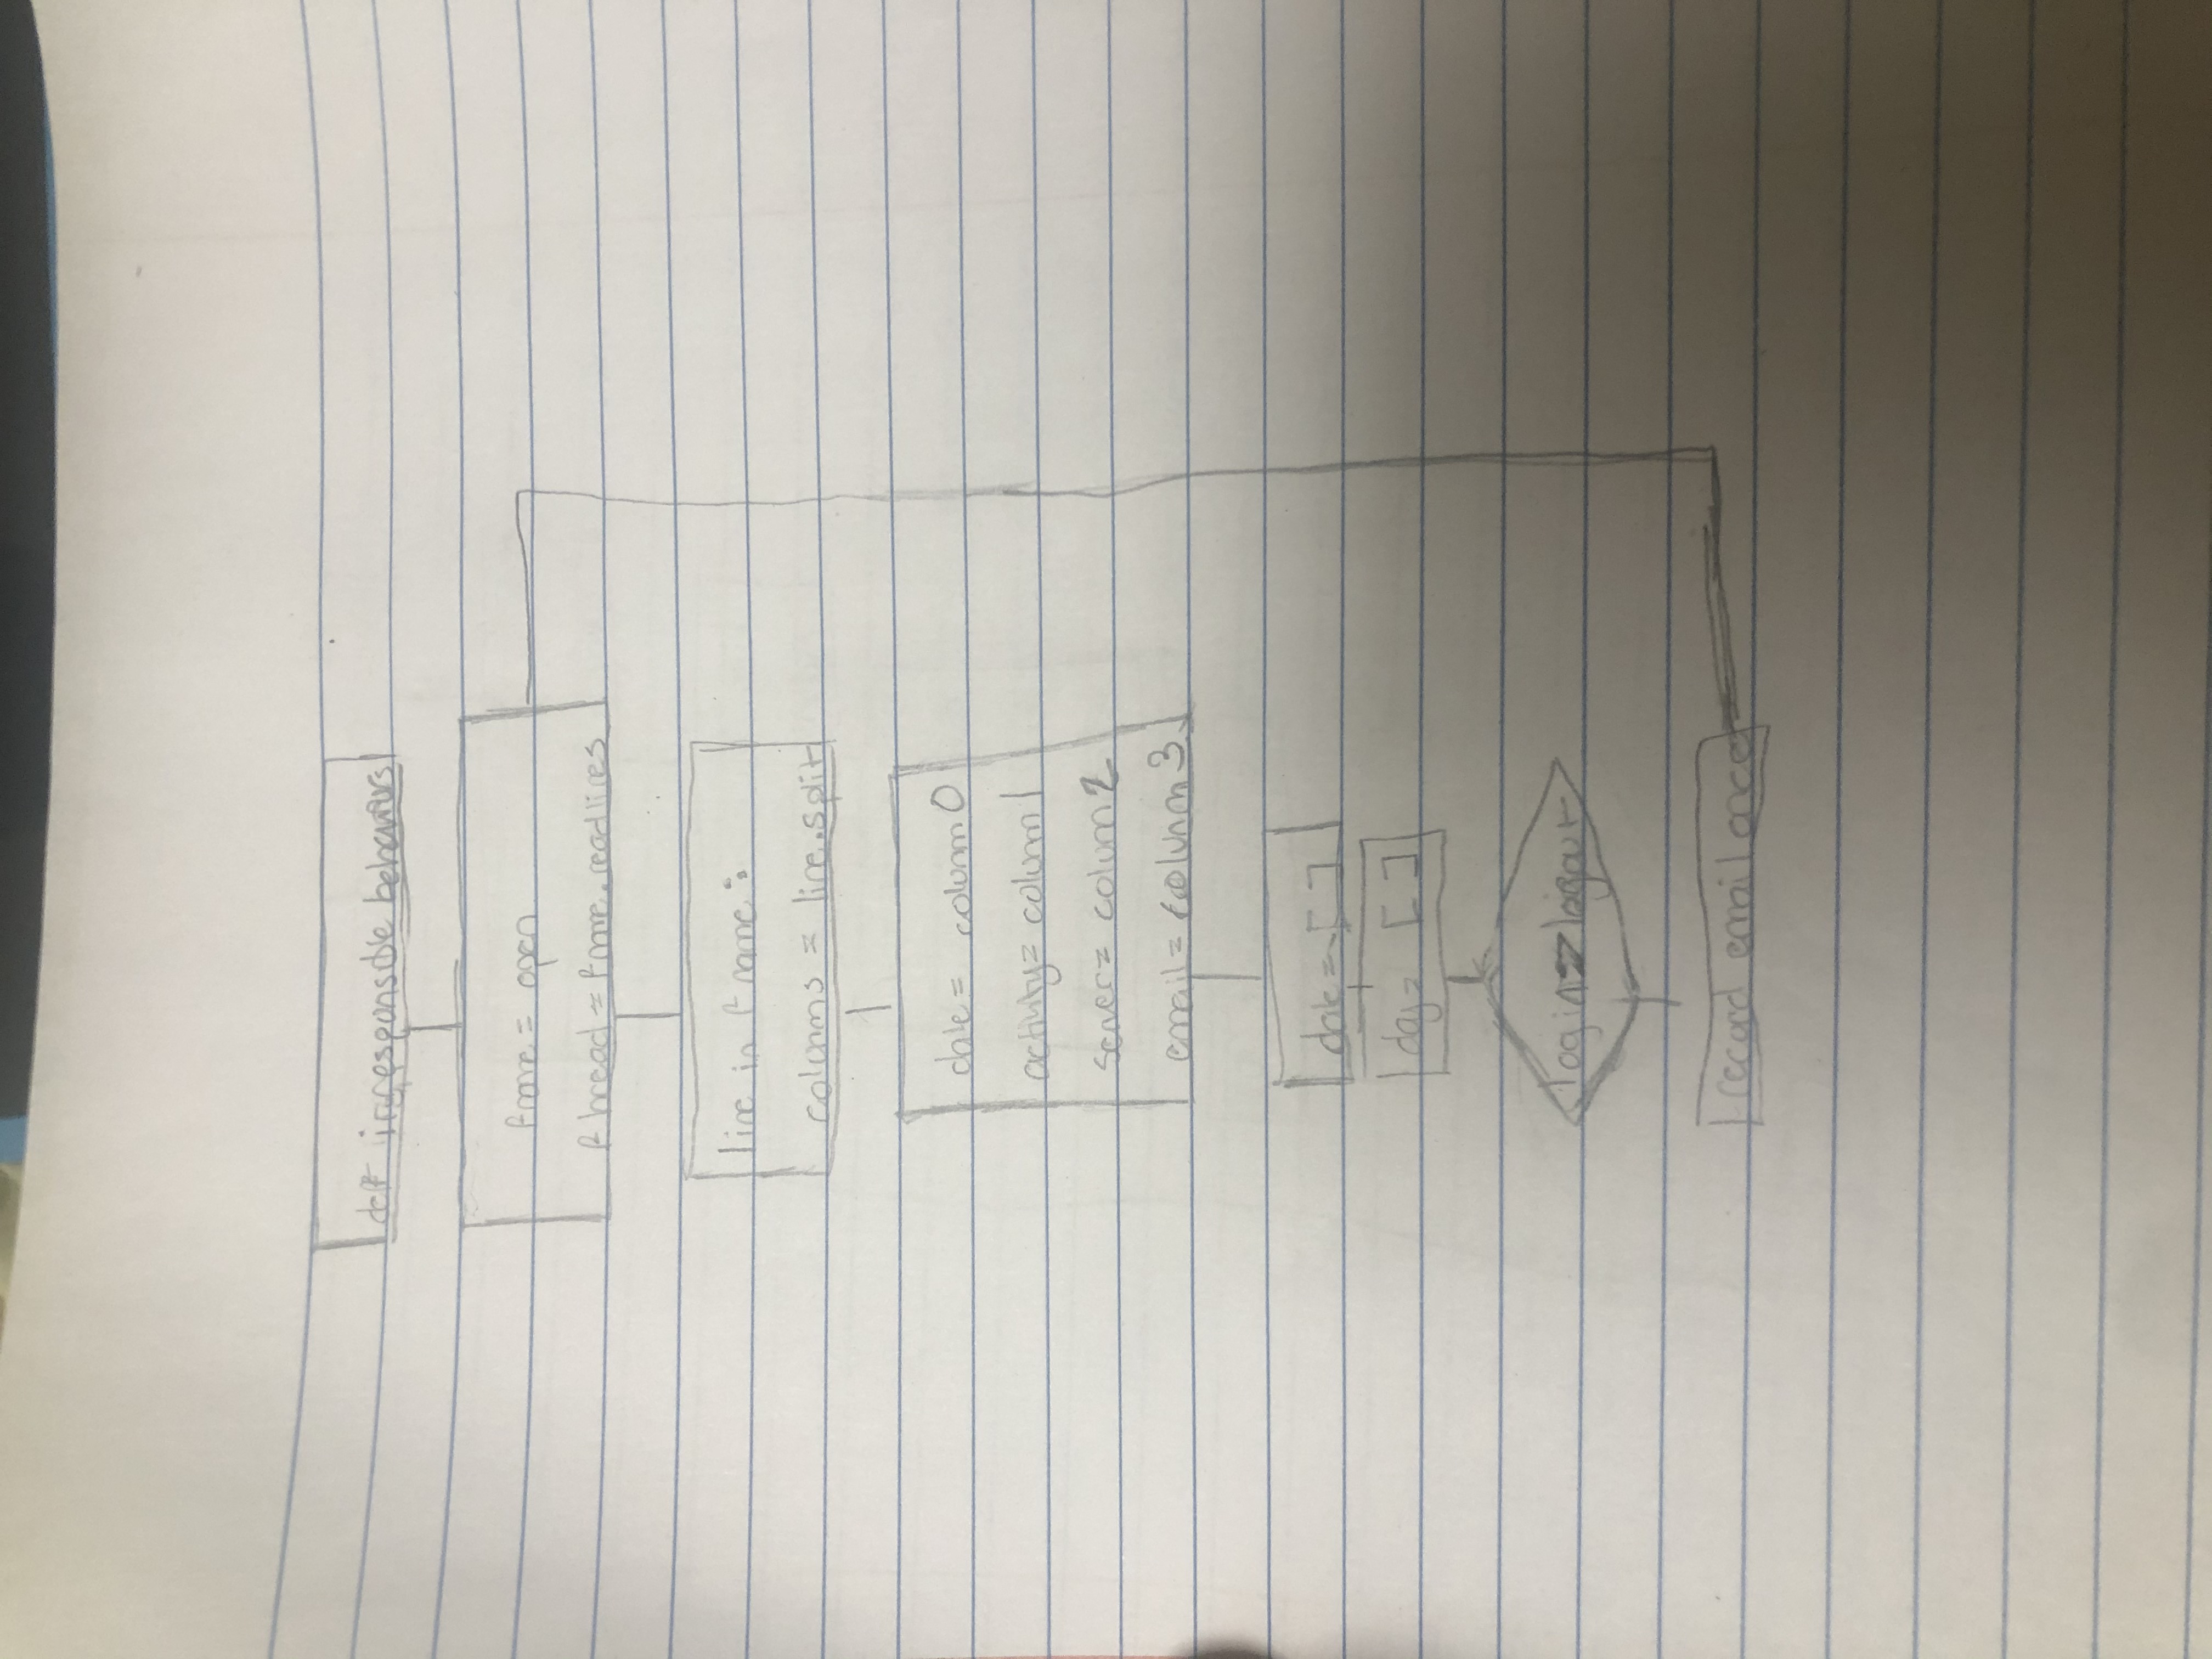 def irresponsible behaviours
fname = open
f hread = fname.readlines
line in f name:
colunms = line.split
date = colunm 0
activity = colunm 1
server = colunm 2
email = colunm 3
date = [ ]
day = [ ]
login > logout
record email once